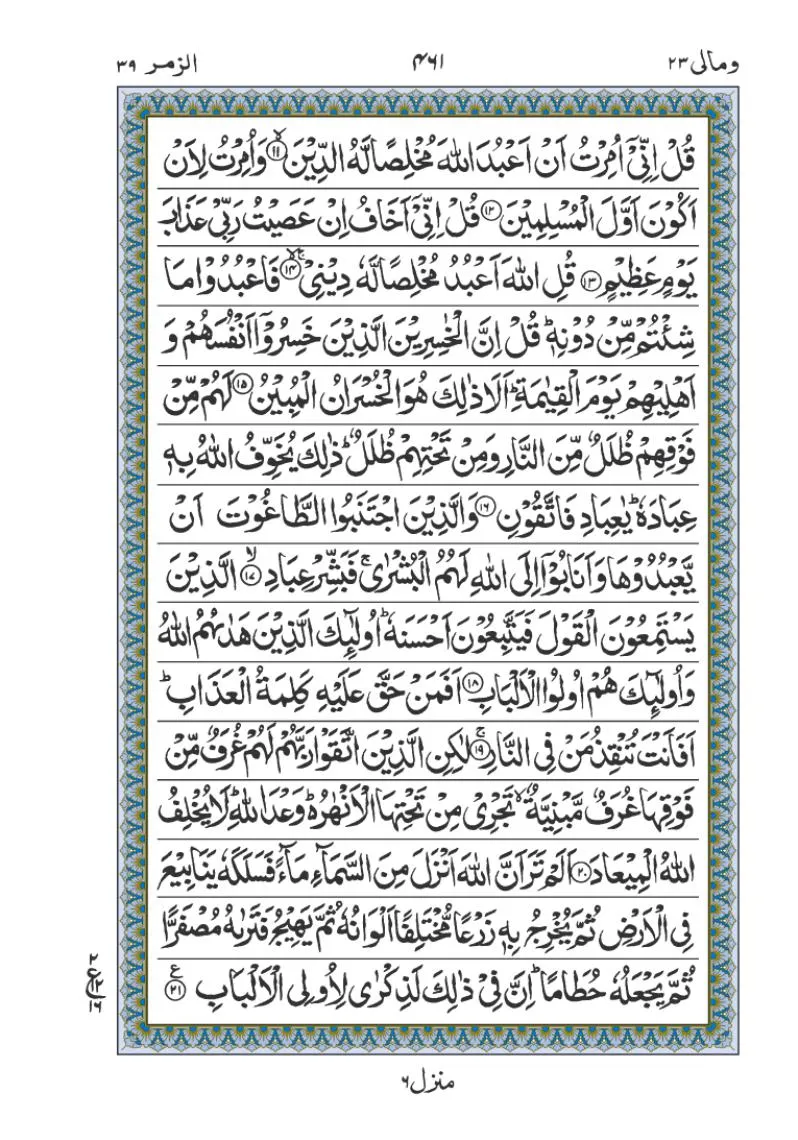 ومالی ۲۳
۴۶۱
الزمر ۳۹
قُلْ اِنِّیْۤ اُمِرْتُ اَنْ اَعْبُدَ اللّٰهَ مُخْلِصًا لَّهُ الدِّیْنَۙ ۱۱ وَاُمِرْتُ لِاَنْ
اَكُوْنَ اَوَّلَ الْمُسْلِمِیْنَ ۱۲ قُلْ اِنِّیْۤ اَخَافُ اِنْ عَصَیْتُ رَبِّیْ عَذَابَ
یَوْمٍ عَظِیْمٍ ۱۳ قُلِ اللّٰهَ اَعْبُدُ مُخْلِصًا لَّهٗ دِیْنِیْۙ ۱۴ فَاعْبُدُوْا مَا
شِئْتُمْ مِّنْ دُوْنِهٖؕ قُلْ اِنَّ الْخٰسِرِیْنَ الَّذِیْنَ خَسِرُوْۤا اَنْفُسَهُمْ وَ
اَهْلِیْهِمْ یَوْمَ الْقِیٰمَةِؕ اَلَا ذٰلِكَ هُوَ الْخُسْرَانُ الْمُبِیْنُ ۱۵ لَهُمْ مِّنْ
فَوْقِهِمْ ظُلَلٌ مِّنَ النَّارِ وَمِنْ تَحْتِهِمْ ظُلَلٌؕ ذٰلِكَ یُخَوِّفُ اللّٰهُ بِهٖ
عِبَادَهٗؕ یٰعِبَادِ فَاتَّقُوْنِ ۱۶ وَالَّذِیْنَ اجْتَنَبُوا الطَّاغُوْتَ اَنْ
یَّعْبُدُوْهَا وَاَنَابُوْۤا اِلَی اللّٰهِ لَهُمُ الْبُشْرٰیۚ فَبَشِّرْ عِبَادِۙ ۱۷ الَّذِیْنَ
یَسْتَمِعُوْنَ الْقَوْلَ فَیَتَّبِعُوْنَ اَحْسَنَهٗؕ اُولٰٓئِكَ الَّذِیْنَ هَدٰىهُمُ اللّٰهُ
وَاُولٰٓئِكَ هُمْ اُولُوا الْاَلْبَابِ ۱۸ اَفَمَنْ حَقَّ عَلَیْهِ كَلِمَةُ الْعَذَابِؕ
اَفَاَنْتَ تُنْقِذُ مَنْ فِی النَّارِۚ ۱۹ لٰكِنِ الَّذِیْنَ اتَّقَوْا رَبَّهُمْ لَهُمْ غُرَفٌ مِّنْ
فَوْقِهَا غُرَفٌ مَّبْنِیَّةٌۙ تَجْرِیْ مِنْ تَحْتِهَا الْاَنْهٰرُ۬ؕ وَعْدَ اللّٰهِؕ لَا یُخْلِفُ
اللّٰهُ الْمِیْعَادَ ۲۰ اَلَمْ تَرَ اَنَّ اللّٰهَ اَنْزَلَ مِنَ السَّمَآءِ مَآءً فَسَلَكَهٗ یَنَابِیْعَ
فِی الْاَرْضِ ثُمَّ یُخْرِجُ بِهٖ زَرْعًا مُّخْتَلِفًا اَلْوَانُهٗ ثُمَّ یَهِیْجُ فَتَرٰىهُ مُصْفَرًّا
ثُمَّ یَجْعَلُهٗ حُطَامًاؕ اِنَّ فِیْ ذٰلِكَ لَذِكْرٰی لِاُولِی الْاَلْبَابِ ۲۱ ع
منزل ۶